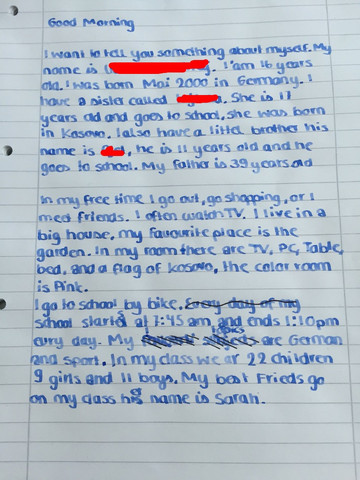 Good Morning
I want to tell you something about myself. My
name is y. I'am 16 years
old. I was born Mai 2000 in Germany. I
have a sister called . She is 17
years old and goes to school, she was born
in Kosovo. I also have a littel brother his
name is , he is 11 years old and he
goes to school. My father is 39 years old
In my free time I go out, go shopping, or I
med friends. I often watch TV. I live in a
big house, my favourite place is the
garden. In my room there are TV, PC, Table,
bed, and a flag of Kosovo, the color room
is Pink.
I go to school by bike. Every day of my
school started at 7:45 am and ends 1:10pm
evry day. My topics are German
and sport. In my class we ar 22 children
9 girls and 11 boys. My best Frieds go
on my class his name is Sarah.